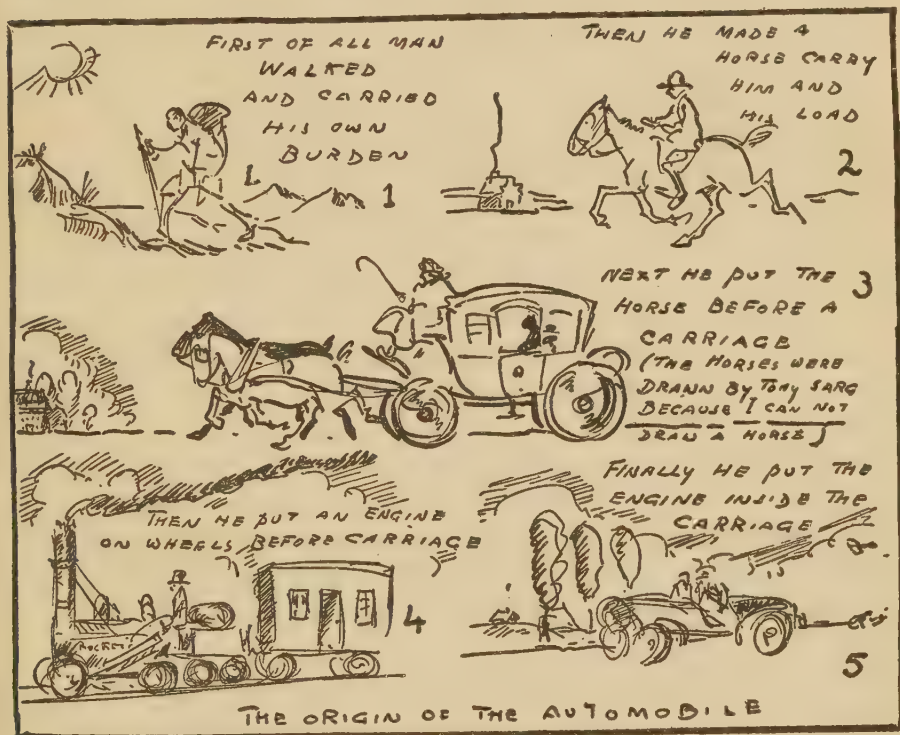 FIRST OF ALL MAN
WALKED
AND CARRIED
HIS OWN
BURDEN
1
THEN HE MADE A
HORSE CARRY
HIM AND
HIS LOAD
2
NEXT HE PUT THE
3
HORSE BEFORE A
CARRIAGE
(THE HORSES WERE
DRAWN BY TONY SARG
BECAUSE I CAN NOT
DRAW A HORSE)
THEN HE PUT AN ENGINE
ON WHEELS BEFORE CARRIAGE
ROCKET
4
FINALLY HE PUT THE
ENGINE INSIDE THE
CARRIAGE
5
THE ORIGIN OF THE AUTOMOBILE